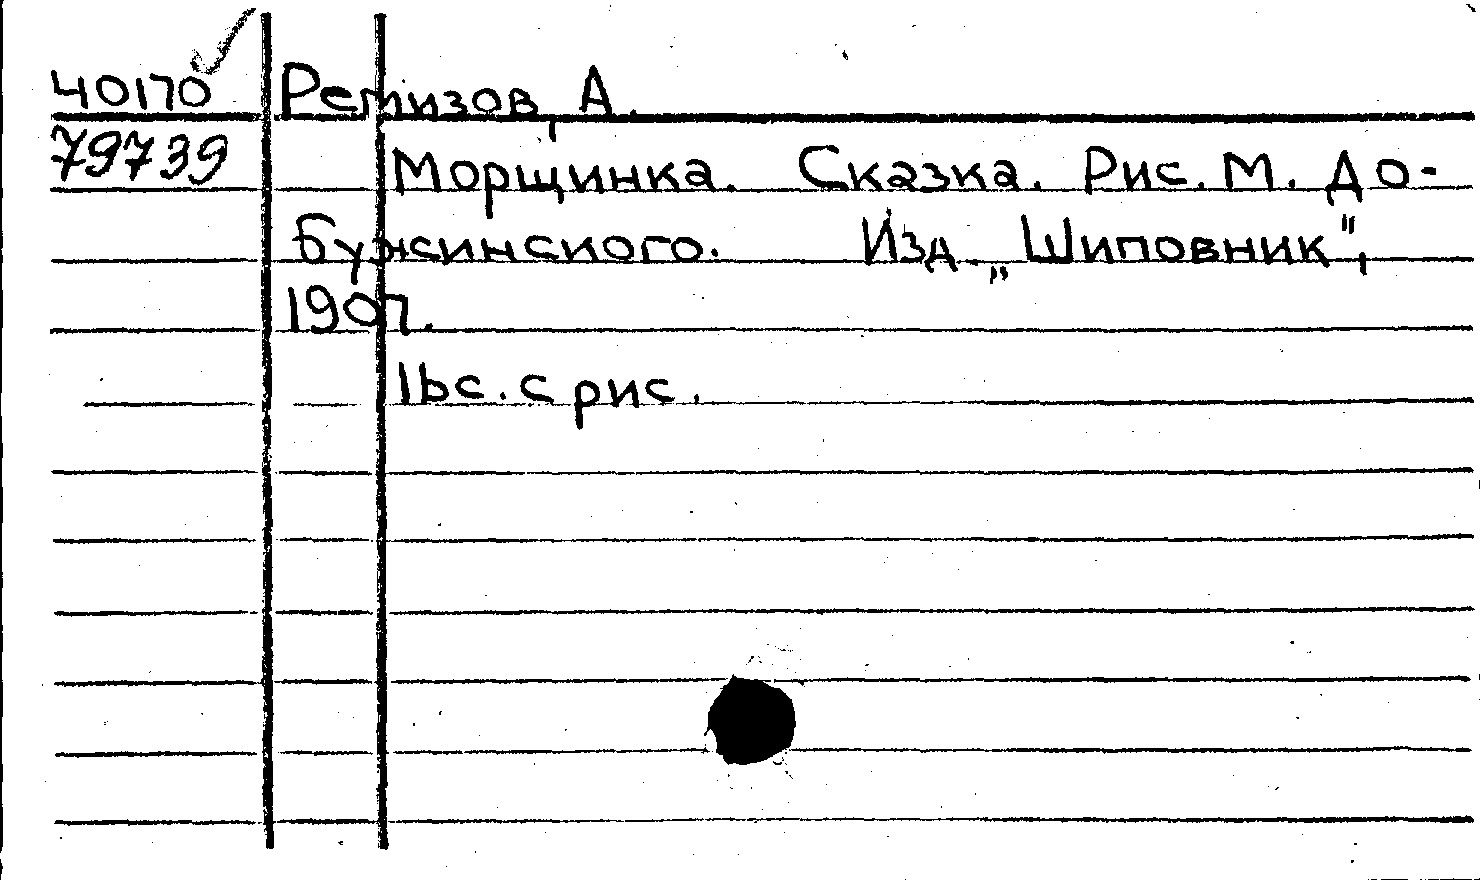 40170 Ремизов, А.
79739 Морщинка. Сказка. Рис. М. До-
бужинского. Изд. „Шиповник",
1907.
16с. с рис.